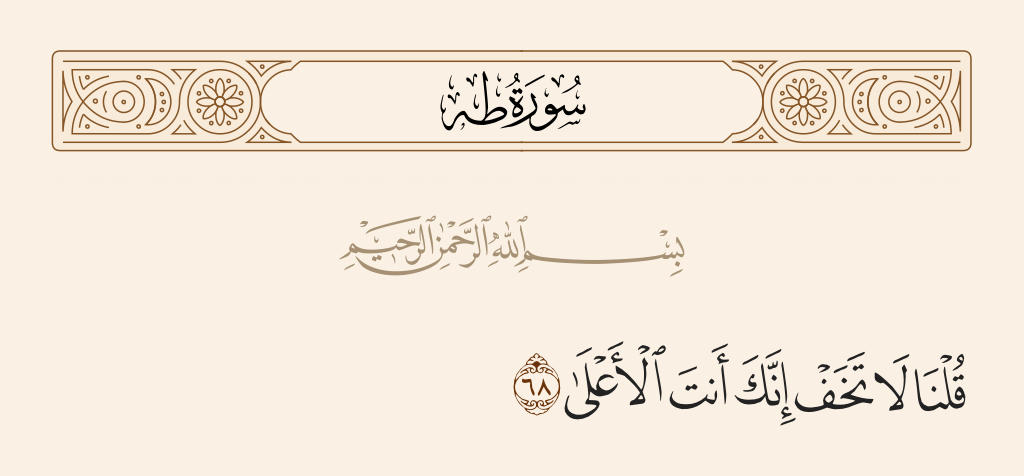 سُورَةُ طه
بِسْمِ ٱللَّهِ ٱلرَّحْمَٰنِ ٱلرَّحِيمِ
قُلْنَا لَا تَخَفْ إِنَّكَ أَنتَ ٱلْأَعْلَىٰ ٦٨